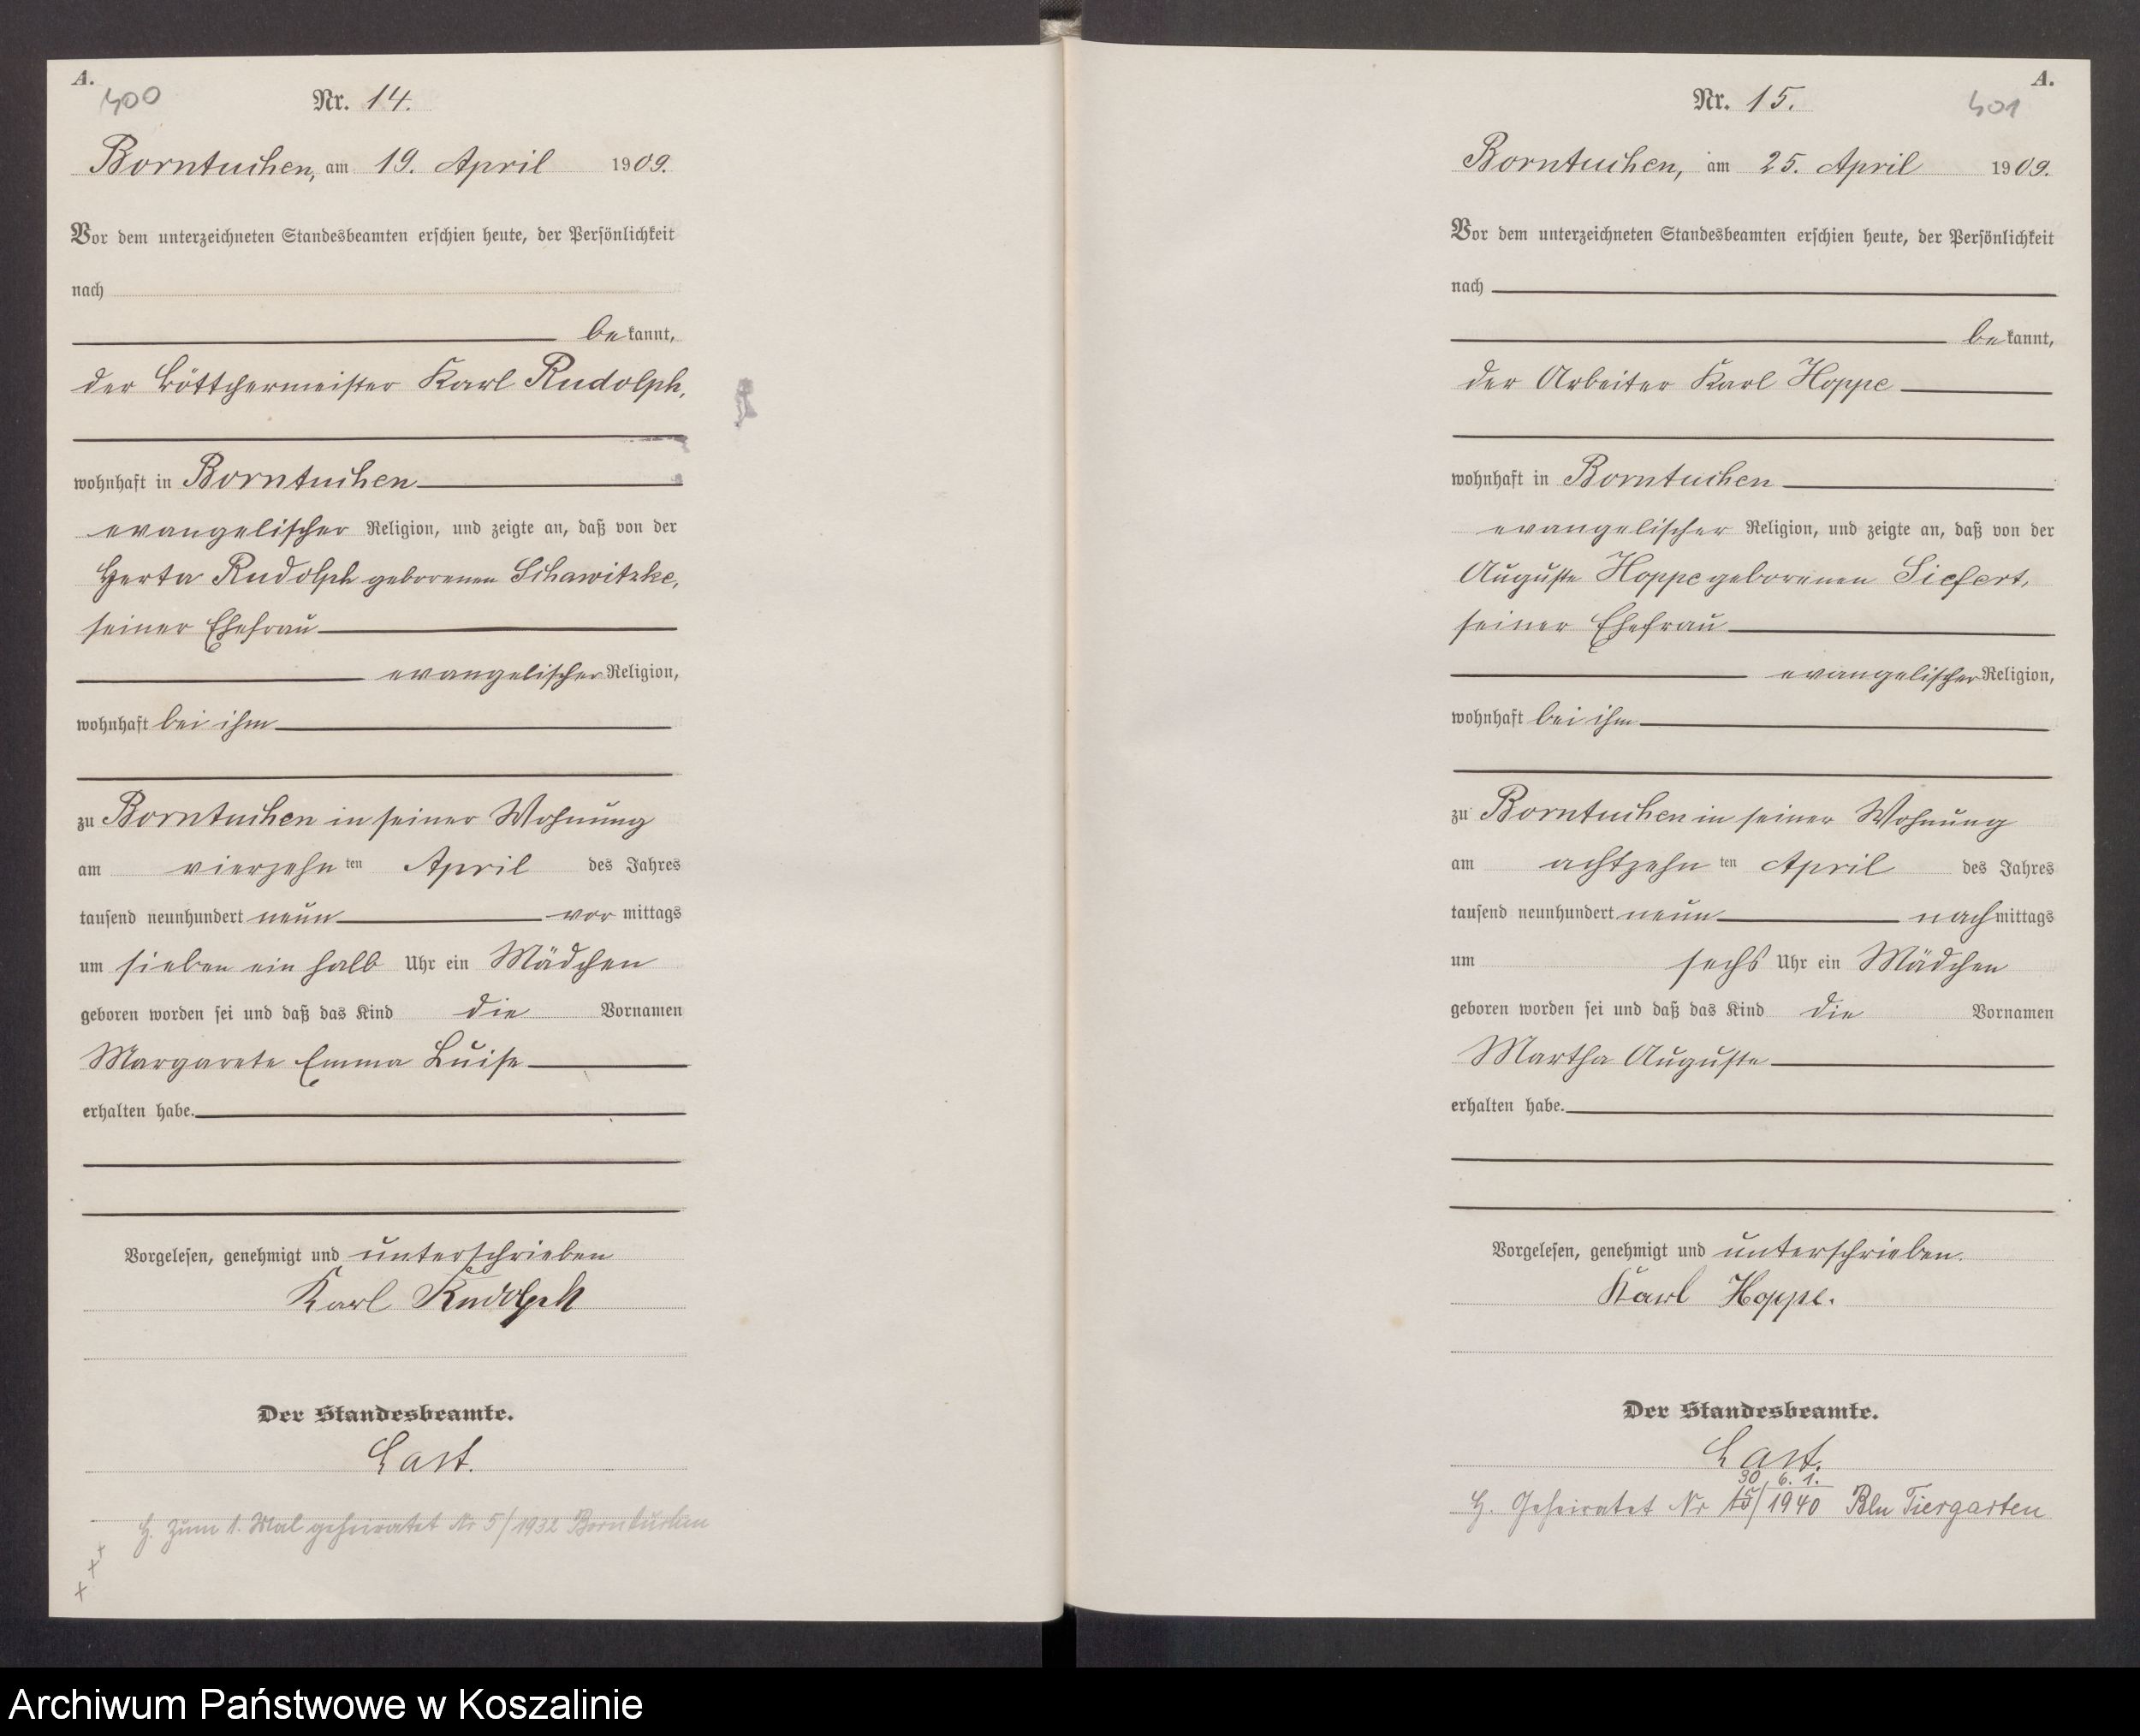 A.
400
Nr. 14.
Borntuchen, am 19. April 1909.
Vor dem unterzeichneten Standesbeamten erschien heute, der Persönlichkeit
nach
bekannt,
der Böttchermeister Karl Rudolph,
wohnhaft in Borntuchen
evangelischer Religion, und zeigte an, daß von der
Herta Rudolph geborenen Schawitzke,
seiner Ehefrau
evangelischer Religion,
wohnhaft bei ihm
zu Borntuchen in seiner Wohnung
am vierzehnten April des Jahres
tausend neunhundert neun vormittags
um sieben ein halb Uhr ein Mädchen
geboren worden sei und daß das Kind die Vornamen
Margarete Emma Luise
erhalten habe.
Vorgelesen, genehmigt und unterschrieben
Karl Rudolph
Der Standesbeamte.
Last.
H. Zum 1. Mal geheiratet Nr 5/1932 Borntuchen
A.
401
Nr. 15.
Borntuchen, am 25. April 1909.
Vor dem unterzeichneten Standesbeamten erschien heute, der Persönlichkeit
nach
bekannt,
der Arbeiter Karl Hoppe
wohnhaft in Borntuchen
evangelischer Religion, und zeigte an, daß von der
Auguste Hoppe geborenen Siefert,
seiner Ehefrau
evangelischer Religion,
wohnhaft bei ihm
zu Borntuchen in seiner Wohnung
am achtzehnten April des Jahres
tausend neunhundert neun nachmittags
um sechs Uhr ein Mädchen
geboren worden sei und daß das Kind die Vornamen
Martha Auguste
erhalten habe.
Vorgelesen, genehmigt und unterschrieben.
Karl Hoppe.
Der Standesbeamte.
Last.
30. 6. 1.
H. Geheiratet Nr 15/1940 Bln Tiergarten
Archiwum Państwowe w Koszalinie